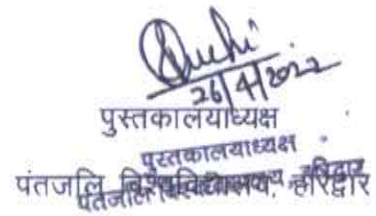 Ruchi
26/4/2022
पुस्तकालयाध्यक्ष
पुस्तकालयाध्यक्ष
पंतजलि विश्वविद्यालय, हरिद्वार
पतंजलि विश्वविद्यालय, हरिद्वार